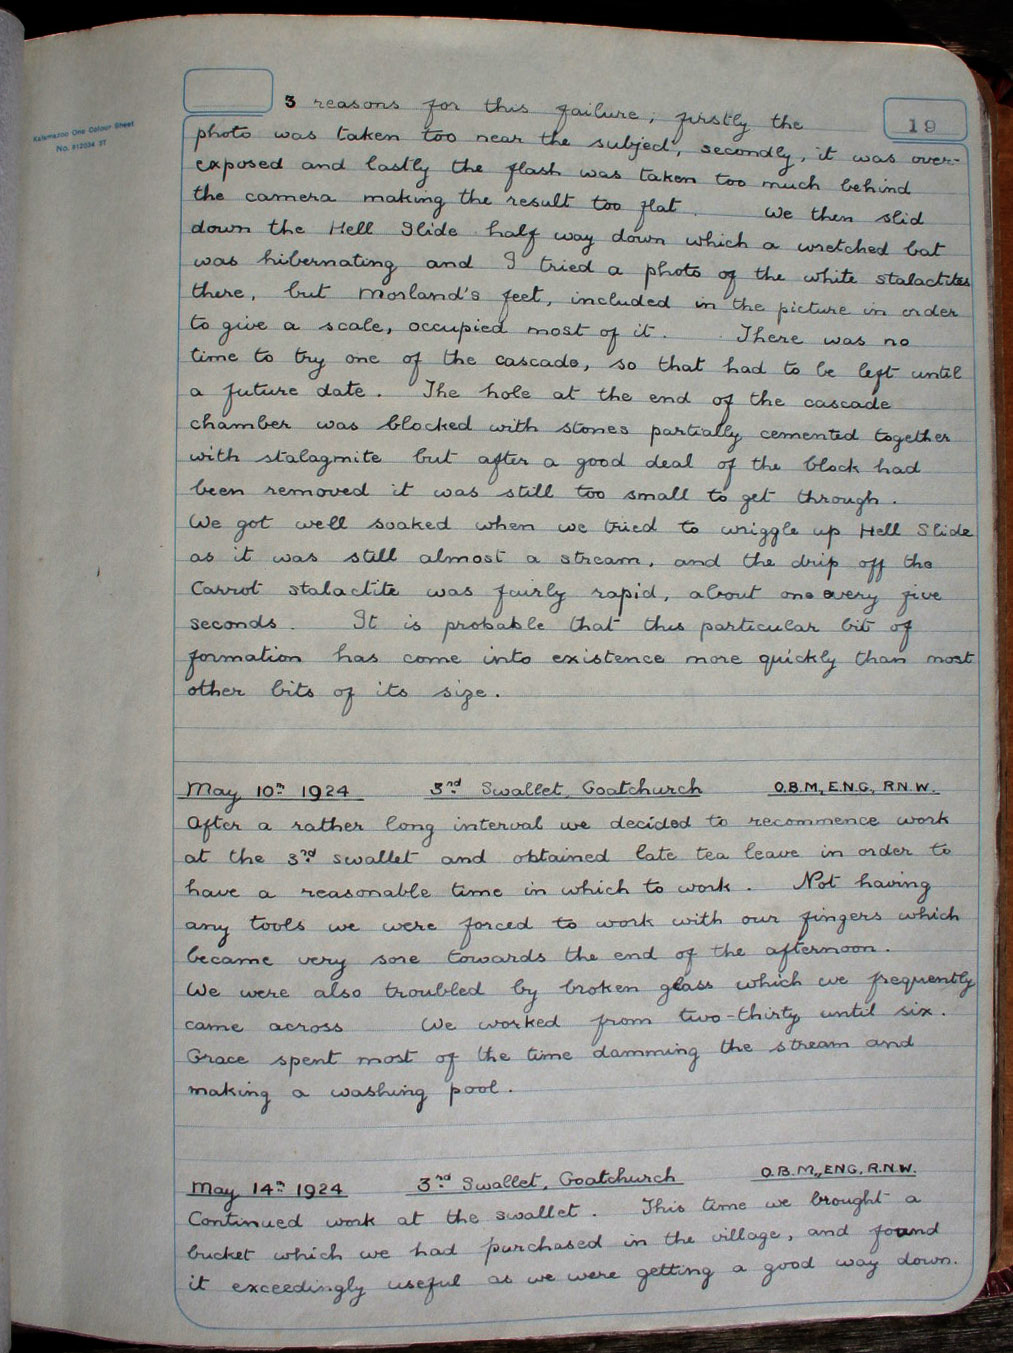 Kalamazoo One Colour Sheet
No. 912034 3T
19
3 reasons for this failure; firstly the
photo was taken too near the subject, secondly, it was over-
exposed and lastly the flash was taken too much behind
the camera making the result too flat. We then slid
down the Hell Slide half way down which a wretched bat
was hibernating and I tried a photo of the white stalactites
there, but Morland's feet, included in the picture in order
to give a scale, occupied most of it. There was no
time to try one of the cascade, so that had to be left until
a future date. The hole at the end of the cascade
chamber was blocked with stones partially cemented together
with stalagmite but after a good deal of the block had
been removed it was still too small to get through.
We got well soaked when we tried to wriggle up Hell Slide
as it was still almost a stream, and the drip off the
Carrot stalactite was fairly rapid, about one every five
seconds. It is probable that this particular bit of
formation has come into existence more quickly than most
other bits of its size.
May 10th 1924 3rd Swallet, Goatchurch O.B.M, E.N.G, R.N.W.
After a rather long interval we decided to recommence work
at the 3rd swallet and obtained late tea leave in order to
have a reasonable time in which to work. Not having
any tools we were forced to work with our fingers which
became very sore towards the end of the afternoon.
We were also troubled by broken glass which we frequently
came across We worked from two-thirty until six.
Grace spent most of the time damming the stream and
making a washing pool.
May 14th 1924 3rd Swallet, Goatchurch O.B.M., ENG, R.N.W.
Continued work at the swallet. This time we brought a
bucket which we had purchased in the village, and found
it exceedingly useful as we were getting a good way down.